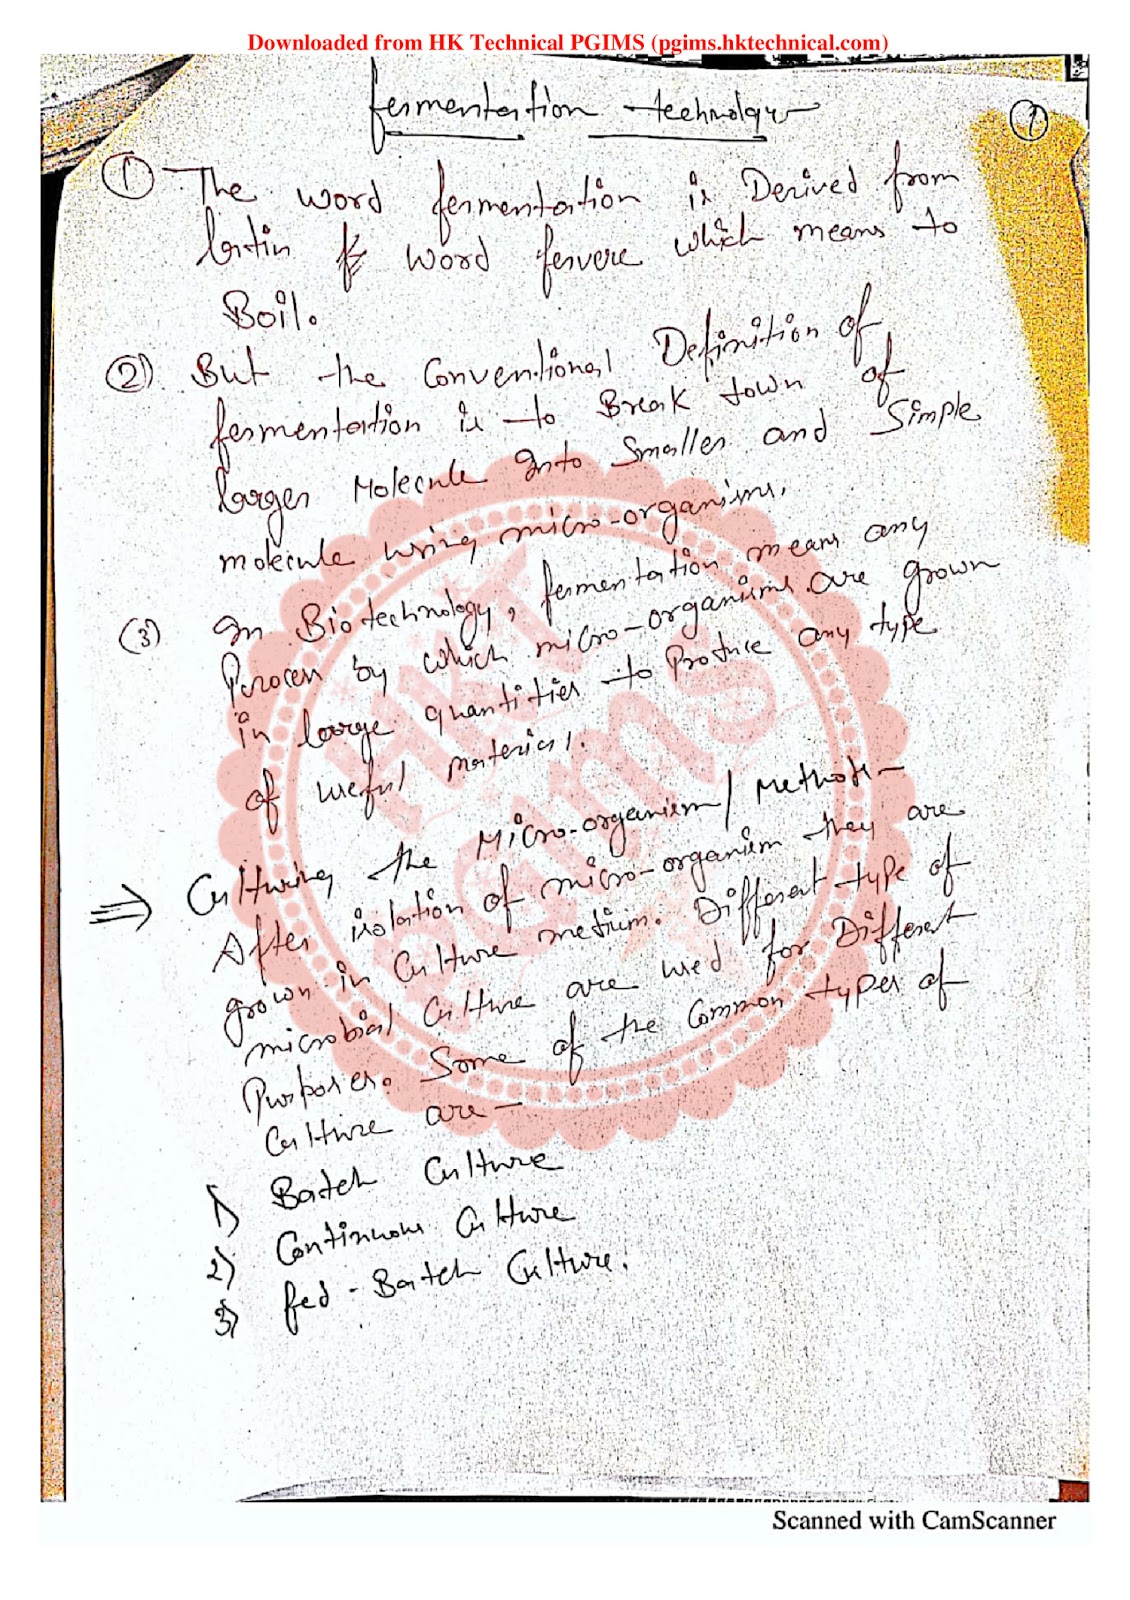 Downloaded from HK Technical PGIMS (pgims.hktechnical.com)
fermentation technology
1
① The word fermentation is Derived from
latin word fervere which means to
Boil.
② But the Conventional Definition of
fermentation is to Break down of
larger Molecule Into Smaller and Simple
molecule using micro-organisms.
(3) In Biotechnology, fermentation means any
Process by which micro-organisms are grown
in large quantities to Produce any type
of useful material.
⇒ Culturing the Micro-organism/Methods-
After isolation of micro-organism they are
grown in Culture medium. Different type of
microbial Culture are used for Different
Purposes. Some of the Common types of
Culture are-
1) Batch Culture
2) Continuous Culture
3) fed-Batch Culture.
HKT
PGIMS
Scanned with CamScanner